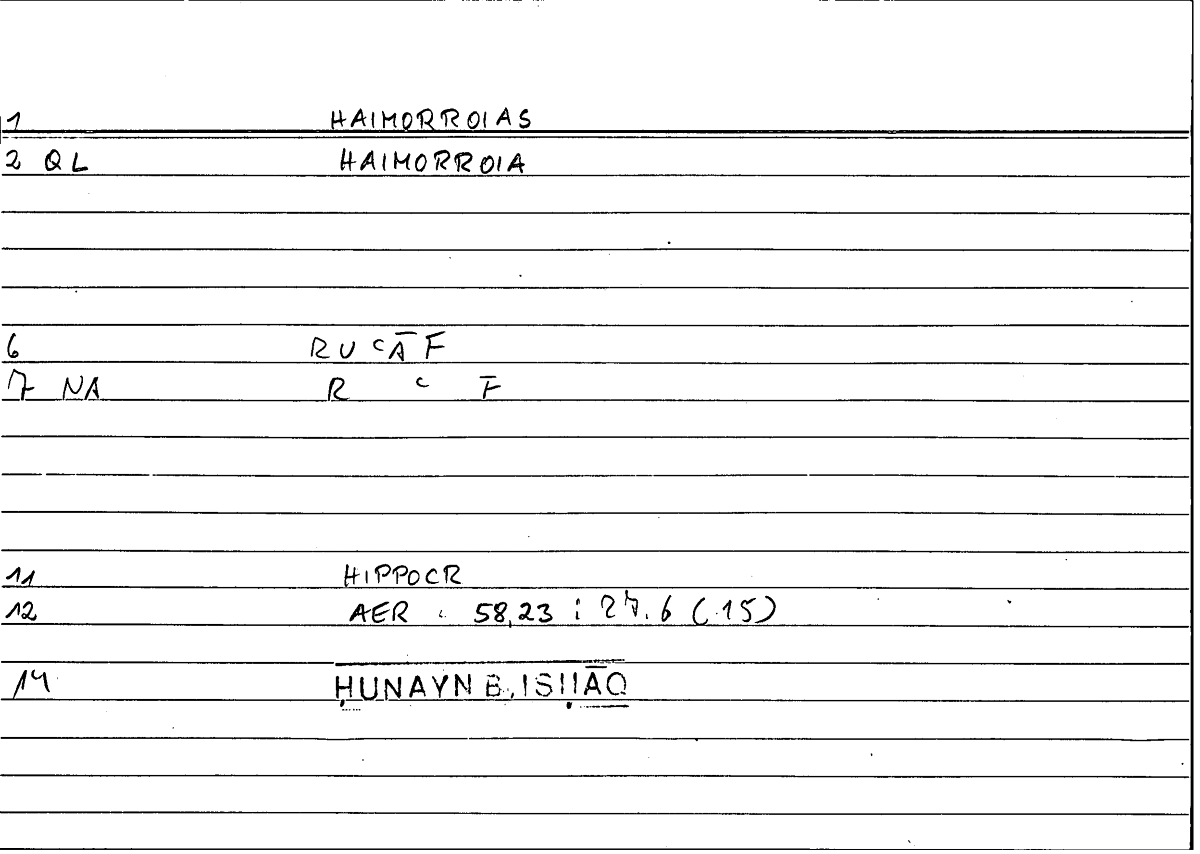 1 HAIMORROIAS
2 QL HAIMORROIA
6 RUʿĀF
7 NA R ʿ F̄
11 HIPPOCR
12 AER : 58,23 ; 27.6 (15)
14 ḤUNAYN B. ISḤĀQ